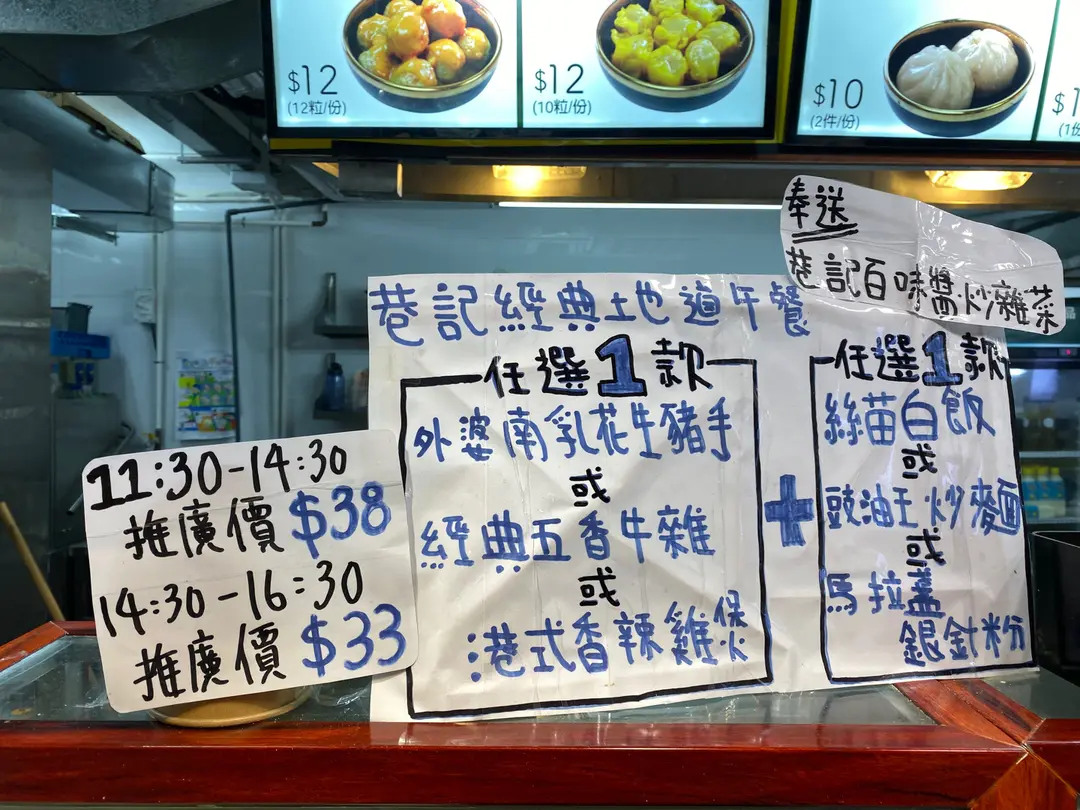 $12
(12粒/份)
$12
(10粒/份)
$10
(2件/份)
$1
(1份
奉送
巷記百味醬炒雜菜
巷記經典地道午餐
任選1款
外婆南乳花生豬手
或
經典五香牛雜
或
港式香辣雞煲
+
任選1款
絲苗白飯
或
豉油王炒麵
或
馬拉盞
銀針粉
11:30-14:30
推廣價$38
14:30-16:30
推廣價$33